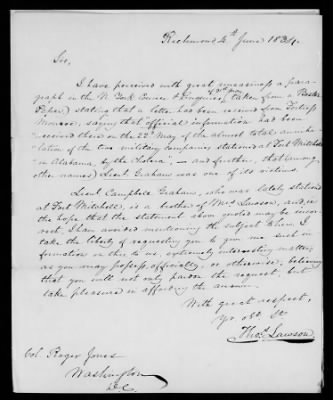 Richmond 4th June 1834.
Sir,
I have perceived with great uneasiness a para-
graph in the N. York Couri. & Enquirer, taken from a Boston
Paper, stating that a letter had been received from Fortress
Monroe, saying that "official information had been
received there on the 22d May of the almost total annihi-
lation of the two military companies stationed at Fort Mitchell
in Alabama, by the Cholera", – and further, that, among
other names, Lieut Graham was one of its victims.
Lieut Campbell Graham, who was lately stationed
at Fort Mitchell, is a brother of Mrs Lawson, and in
the hope that the statement above quoted may be incor-
rect, I have avoided mentioning the subject when I
take the liberty of requesting you to give me such in-
formation on this to us, extremely interesting matter,
as you may possess, officially, or otherwise, believing
that you will not only pardon the request, but
take pleasure in affording the answer.
With great respect,
yr obt St
Thos Lawson
Col. Roger Jones
Washington
D.C.